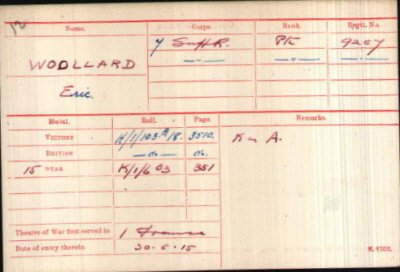 Name. Corps. Rank. Regtl. No.
WOOLLARD 7 Suff R. Pte 9257
Eric. —"— —"— —"—
Medal. Roll. Page Remarks.
VICTORY K/1/103 B18. 3510. K in A.
BRITISH —do— do.
15 STAR K/1/6 B3 351
Theatre of War first served in 1 France
Date of entry therein 30.5.15
K. 1380.